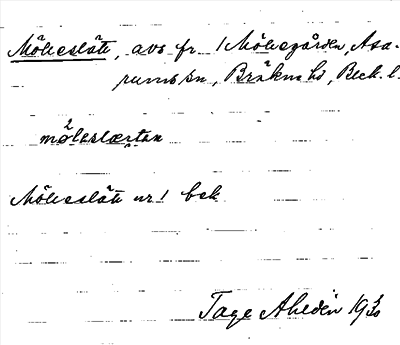 Möllesläte, avs fr. 1 Möllegården, Asa-
rums sn, Bräkne hd, Blek. l.
möleslæten
Möllesläte nr 1 bek
Tage Ahldén 1930